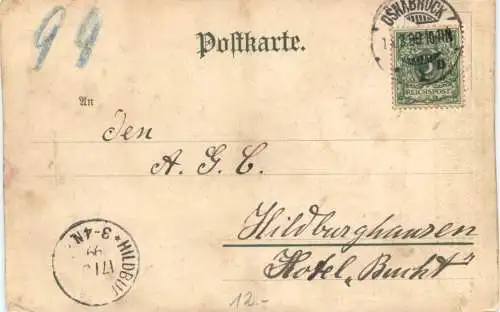 99
OSNABRÜCK
5
REICHSPOST
Postkarte.
An
Den
A. G. C.
Hildburghausen
Hotel „Bucht"
HILDBU
17 1
99
3-4N.
12.-